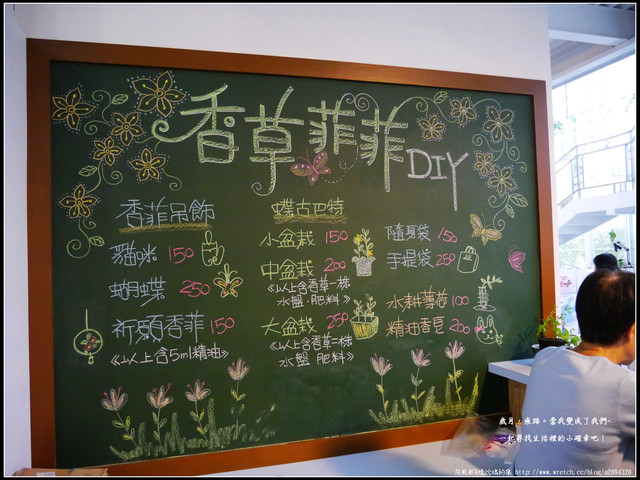 香草菲菲DIY
香菲吊飾
貓咪 150
蝴蝶 250
祈願香菲 150
《以上含5ml精油》
蝶古巴特
小盆栽 150
中盆栽 200
《以上含香草一株
水盤.肥料》
大盆栽 250
《以上含香草一株
水盤 肥料》
隨身袋 150
手提袋 250
水耕薄荷 100
精油香豆 200
歲月
旅路。當我變成了我們~
一起尋找生活裡的小確幸吧!
http://www.wretch.cc/blog/a2894320